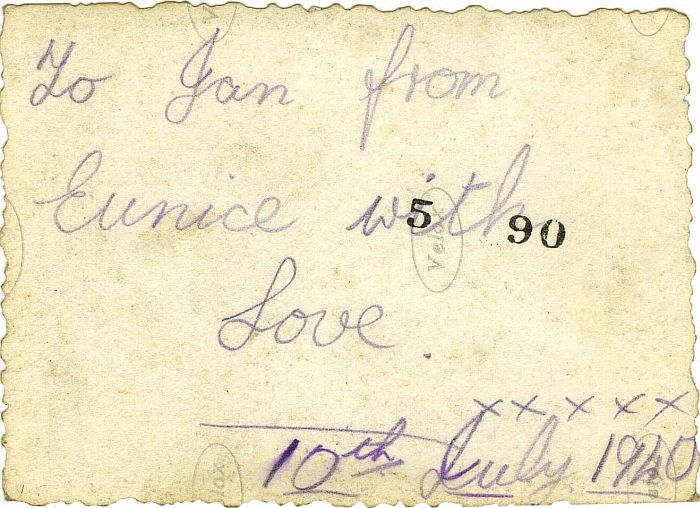 To Jan from
Eunice with
5 90
Velox
Love.
x x x x x
10th July 1940